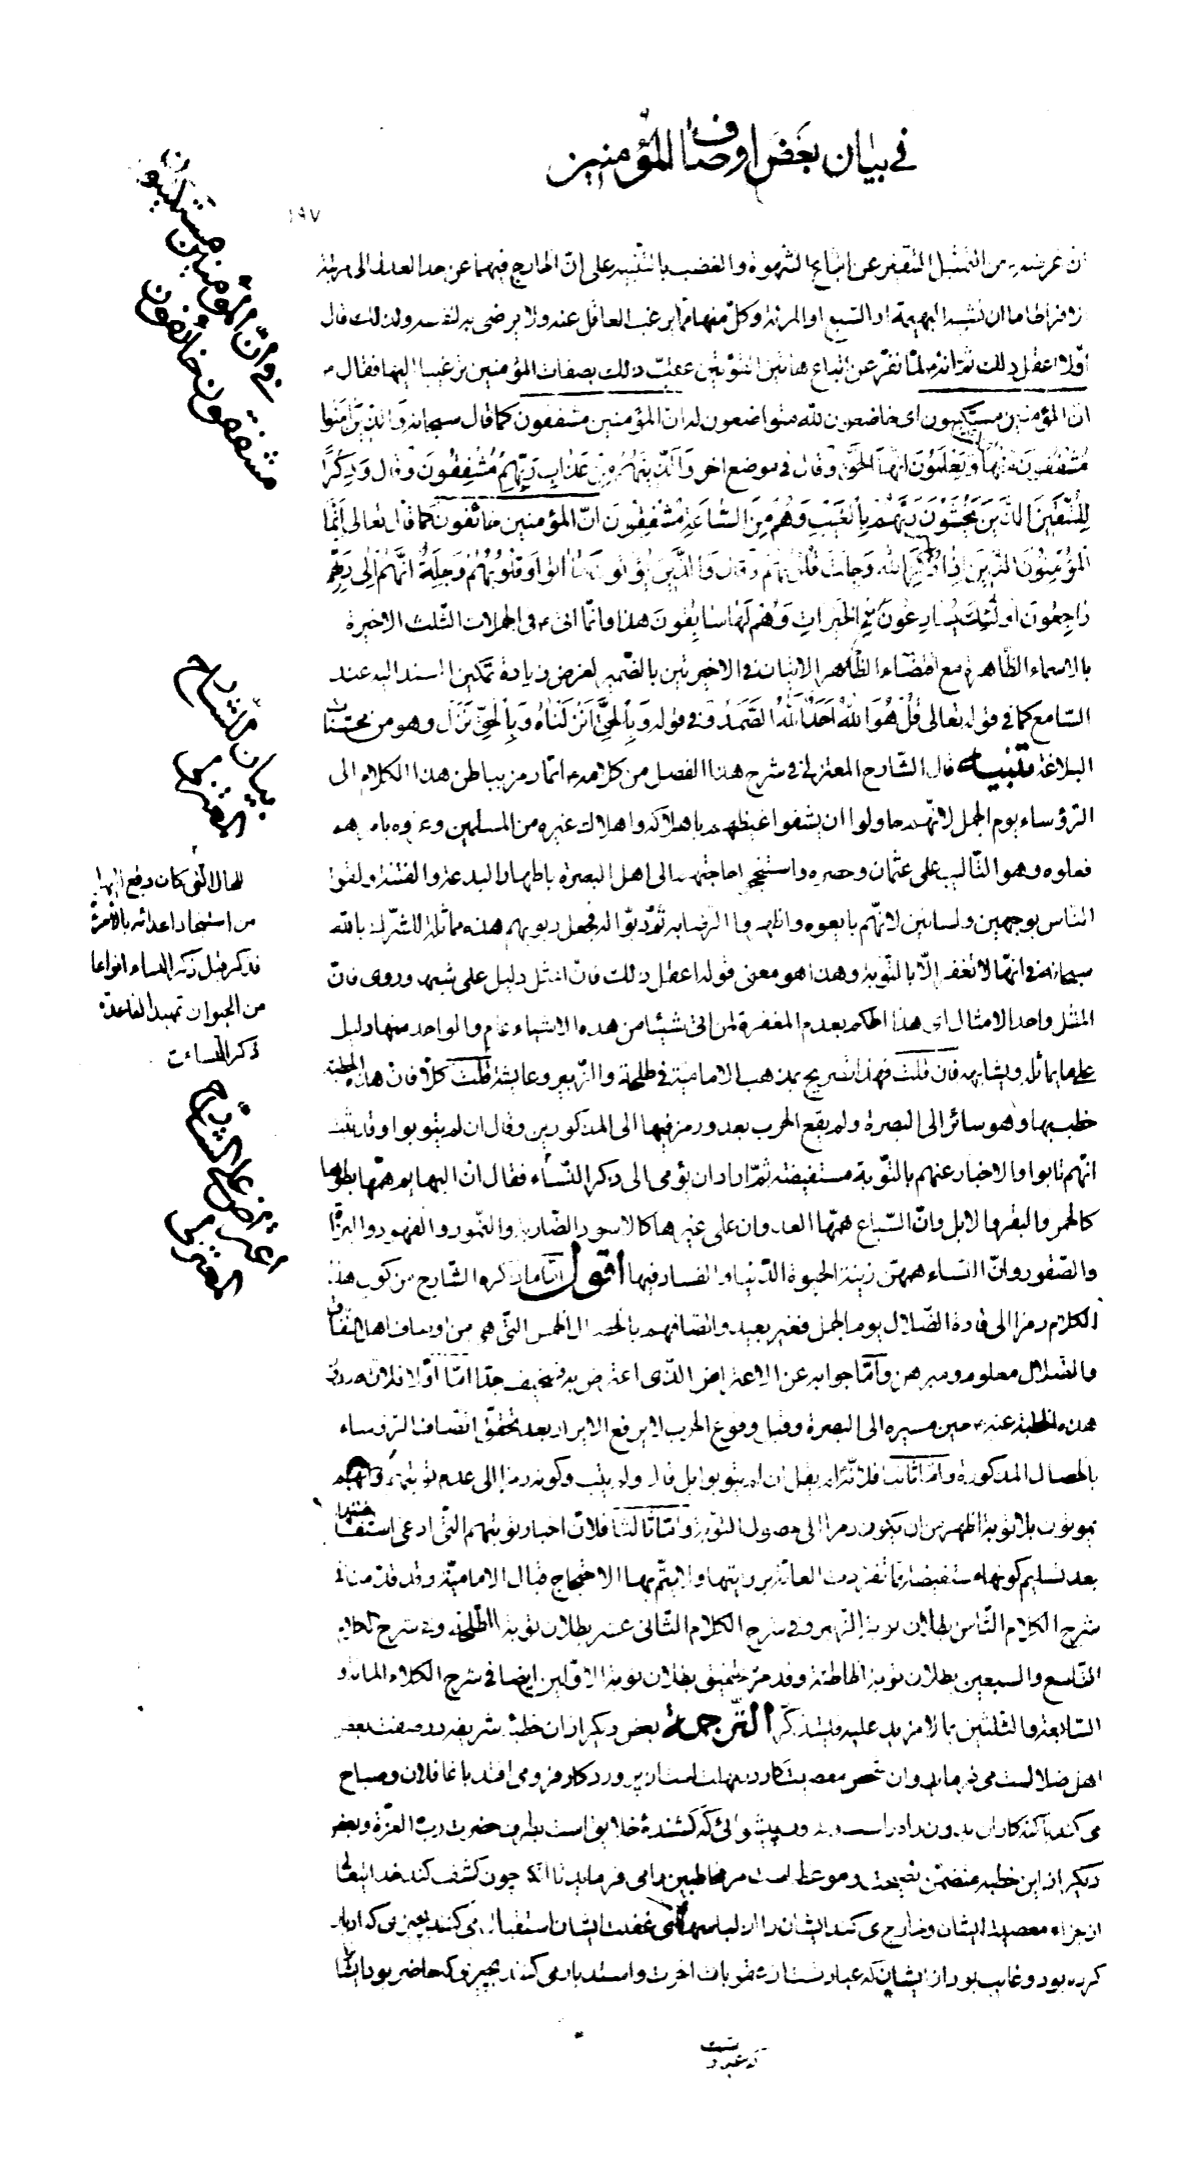 في بيان بعض اوصاف المؤمنين
١٩٧
في وان المؤمنين مستكينون
مشفقون خائفون
ان غرضه من التمثيل التنفير عن اتباع الشهوة والغضب بالتنبيه على ان الخارج فيهما عن حد العدل الى مرتبة
الافراط اما ان يشبه البهيمة او السبع او المرئة وكل منها مما يرغب العاقل عنه ولا يرضى به لنفسه ولذلك قال
أولا اعقل ذلك ثم انه لما نفر عن اتباع هاتين القوتين عقب ذلك بصفات المؤمنين ترغيبا اليها فقال
ان المؤمنين مستكينون اى خاضعون لله متواضعون له ان المؤمنين مشفقون كما قال سبحانه وَالَّذِينَ آمَنُوا
مُشْفِقُونَ مِنْهَا وَيَعْلَمُونَ اَنَّهَا الْحَقُّ وقال في موضع اخر وَالَّذِينَ هُمْ مِنْ عَذَابِ رَبِّهِمْ مُشْفِقُونَ وقال وَذِكْرًا
لِلْمُتَّقِينَ الَّذِينَ يَخْشَوْنَ رَبَّهُمْ بِالْغَيْبِ وَهُمْ مِنَ السَّاعَةِ مُشْفِقُونَ انّ المؤمنين خائفون كما قال تعالى اِنَّمَا
الْمُؤْمِنُونَ الَّذِينَ اِذَا ذُكِرَ اللهُ وَجِلَتْ قُلُوبُهُمْ وقال وَالَّذِينَ يُؤْتُونَ مَا اٰتَوْا وَقُلُوبُهُمْ وَجِلَةٌ اَنَّهُمْ اِلٰى رَبِّهِمْ
رَاجِعُونَ اُولٰئِكَ يُسَارِعُونَ فِي الْخَيْرَاتِ وَهُمْ لَهَا سَابِقُونَ هذا وانّما اتى ع في الجملات الثلث الاخيرة
بالاسماء الظاهرة مع اقتضاء الظاهر الاتيان في الاخيرتين بالضمير لغرض زيادة تمكين المسند اليه عند
السامع كما في قوله تعالى قُلْ هُوَ اللهُ اَحَدٌ اَللهُ الصَّمَدُ وفي قوله وَبِالْحَقِّ اَنْزَلْنَاهُ وَبِالْحَقِّ نَزَلَ وهو من محسّنات
البلاغة تنبيه قال الشارح المعتزلي في شرح هذا الفصل من كلامه ع انما رمز بباطن هذا الكلام الى
الرؤساء يوم الجمل لانهم حاولوا ان يشفوا غيظهم باهلاكه واهلاك غيره من المسلمين وعرّوه بامر هم
فعلوه وهو التأليب على عثمان وحصره واستنجحوا حاجتهم الى اهل البصرة باظهار البدعة والفتنة ولقوا
الناس بوجهين ولسانين لانّهم بايعوه واظهروا الرضا به ثم دبّوا له فجعل ذنوبهم هذه مماثلة للشرك بالله
سبحانه في انّها لا تغفر إلّا بالتوبة وهذا هو معنى قوله اعقل ذلك فانّ المثل دليل على شبهه وروى فانّ
المثل واحد الامثال اى هذا الحكم بعدم المغفرة لمن اتى شيئا من هذه الاشياء عام والواحد منها دليل
على ما يماثله ويشابهه فان قلت فهذا تصريح بمذهب الامامية في طلحة والزبير وعايشة قلت كلّا فان هذه الخطبة
خطب بها وهو سائر الى البصرة ولم يقع الحرب بعد ورمز فيها الى المذكورين وقال ان لم يتوبوا وقد ثبت
انهم تابوا والاخبار عنهم بالتوبة مستفيضة ثم اراد ان يؤمى الى ذكر النساء فقال ان البهايم همها بطونها
كالحمر والبقر والابل وانّ السباع همها العدوان على غيرها كالاسود الضارية والنمور والفهود والبزاة
والصقور وانّ النساء همّهن زينة الحيوة الدنيا والفساد فيها اقول اما ما ذكره الشارح من كون هذا
الكلام رمزا الى قادة الضلال يوم الجمل فغير بعيد واتصافهم بالخصال الخمس التي هى من اوصاف اهل النفاق
والضلال معلوم ومبرهن وامّا جوابه عن الاعتراض الذى اعترض به فسخيف جدّا امّا اوّلا فلانّ صدور
هذه الخطبة عنه ع حين مسيره الى البصرة وقبل وقوع الحرب لا يرفع الايراد بعد تحقق اتصاف الرؤساء
بالخصال المذكورة وامّا ثانيا فلانّه لم يقل ان لم يتوبوا بل قال ولم يتب وكونه رمزا الى عدم توبتهم وانهم
يموتون بلا توبة اظهر من ان يكون رمزا الى حصول التوبة وامّا ثالثا فلانّ اخبار توبتهم التى ادعى استفاضتها
بعد تسليم كونها مستفيضة مما تفردت العامّة بروايتها ولا يتم بها الاحتجاج قبال الامامية وقد قدّمنا في
شرح الكلام الثامن بطلان توبة الزبير وفي شرح الكلام الثاني عشر بطلان توبة الطلحة وفي شرح الكلام
التاسع والسبعين بطلان توبة الخاطئة وقد مرّ تحقيق بطلان توبة الاوّلين ايضا في شرح الكلام المائة و
السابعة والثلثين بما لا مزيد عليه فليتذكّر الترجمة بعض ديكر از ان خطبه شريفه در صفت بعض
اهل ضلالت مى فرمايد وان شخص معصيت كار در مهلت است از پروردكار فرو مى افتد با غافلان وصباح
مى كند با كنه كاران بدون راه راست وبدون پيشوائى كه كشنده خلايق است بطرف حضرت ربّ العزّة وبعض
ديكر از اين خطبه متضمن نصيحت وموعظه است مر مخاطبين را مى فرمايد تا آنكه چون كشف كند خدايتعالى
از جزاء معصيت ايشان وخارج مى كند ايشان را از لباسهاى غفلت ايشان استقبال مى كنند بچيزى كه ادبار
كرده بود وغايب بود از ايشان كه عبارتست از عقوبات اخرت واستدبار مى كنند بچيزى كه حاضر بود ايشانرا
كه عبارتست
بيان الشارح
المعتزلى
للحال التى كان دفع اليها
من استنجاد اعدائه بالامرئة
فذكر قبل ذكر النساء انواعا
من الحيوان تمهيدا لقاعدة
ذكر النساء ت
اعتراض على الشارح
المعتزلى